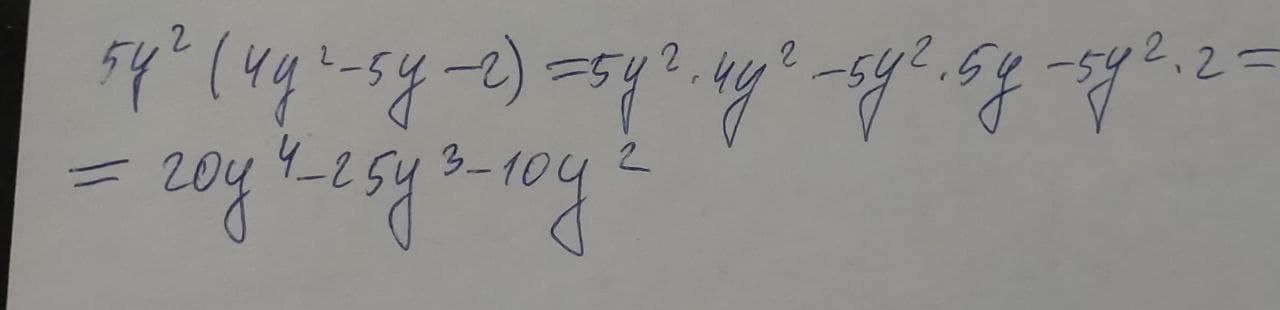 5y² (4y² - 5y - 2) = 5y² · 4y² - 5y² · 5y - 5y² · 2 =
= 20y⁴ - 25y³ - 10y²